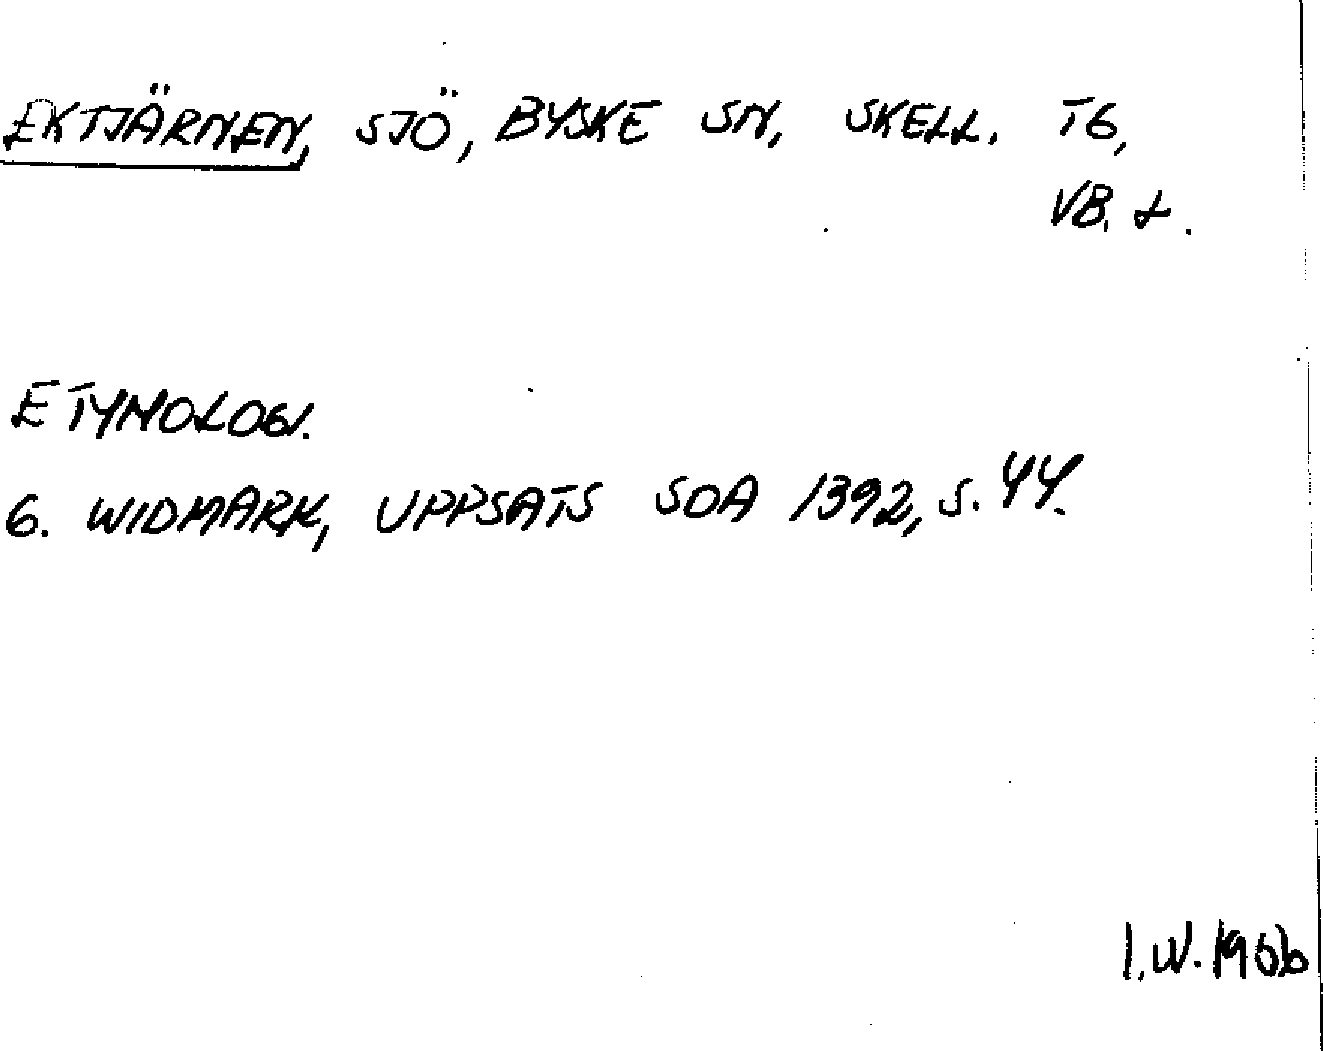 EKTJÄRNEN, SJÖ, BYSKE SN, SKELL. TG,
VB. L.
ETYMOLOGI.
G. WIDMARK, UPPSATS SOA 1392, S. 44.
I.W. 1966